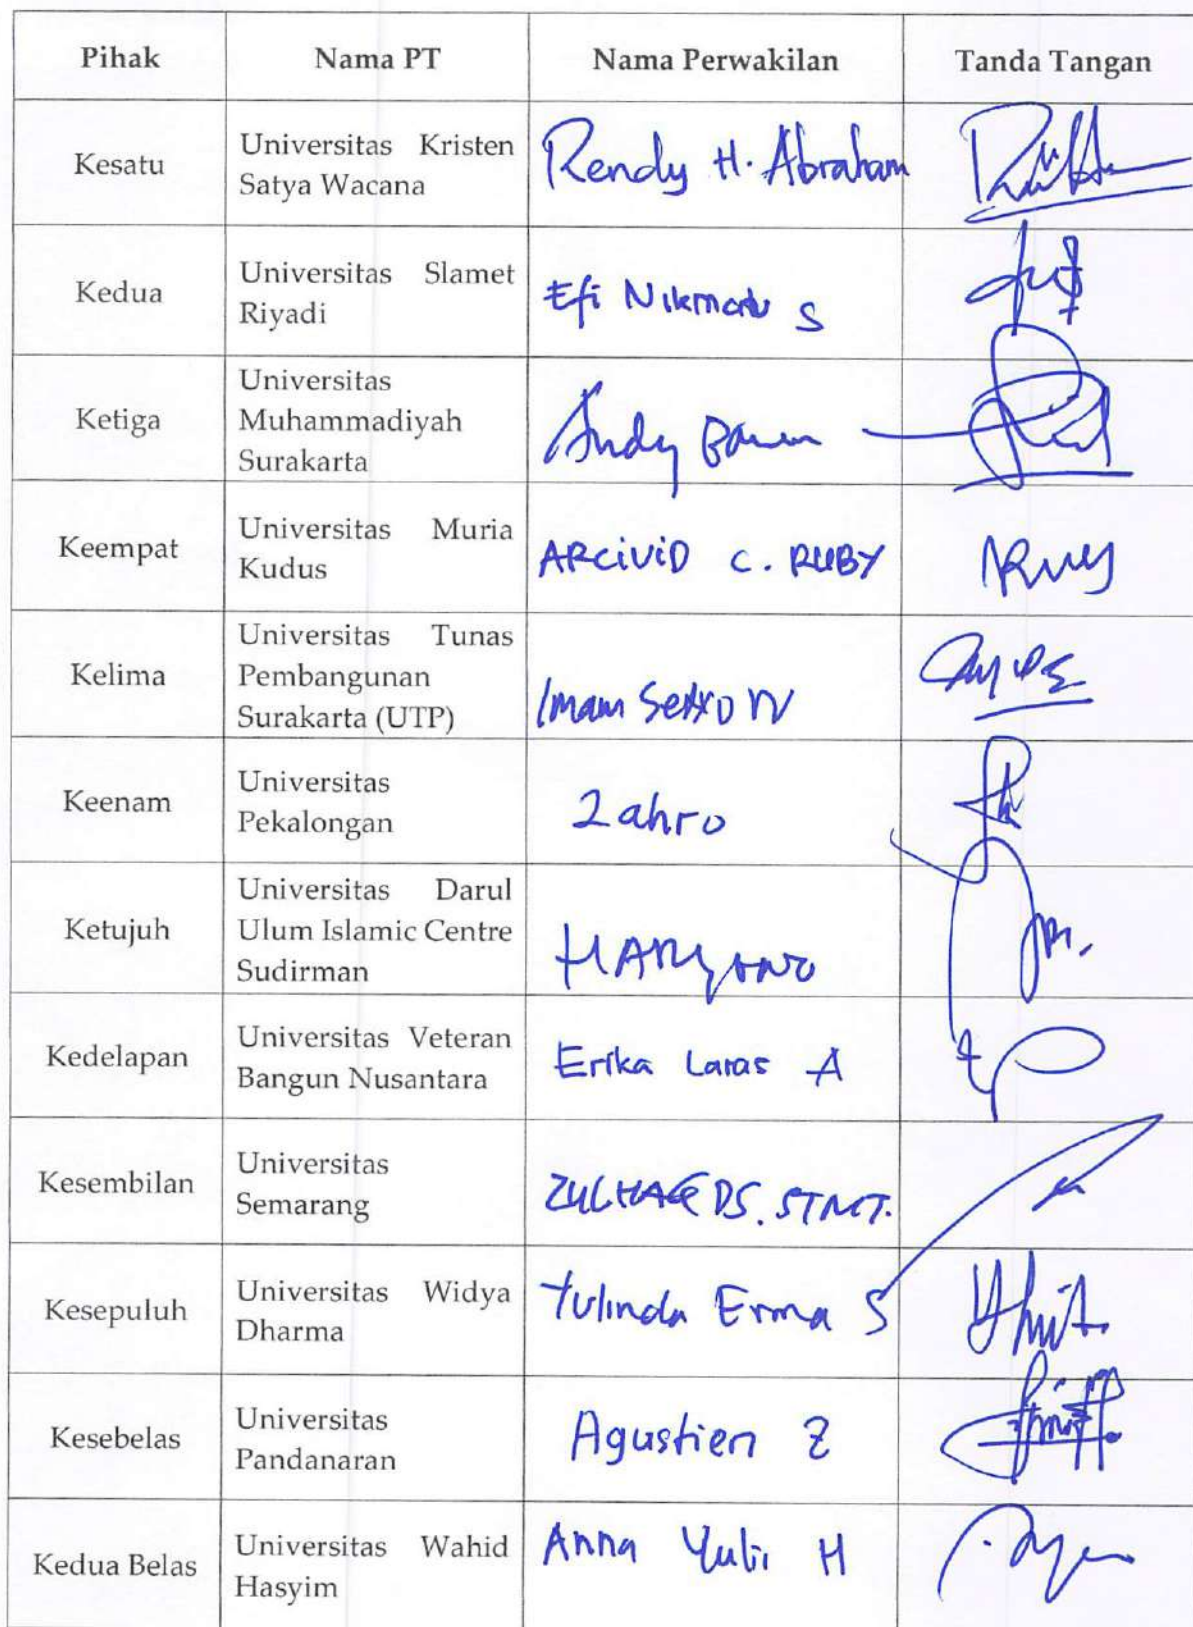 Pihak Nama PT Nama Perwakilan Tanda Tangan
Kesatu
Universitas Kristen
Satya Wacana
Rendy H. Abraham
Kedua
Universitas Slamet
Riyadi
Efi Nikmatu S
Ketiga
Universitas
Muhammadiyah
Surakarta
Andy
Keempat
Universitas Muria
Kudus
ARCiViD C. RUBY
Kelima
Universitas Tunas
Pembangunan
Surakarta (UTP)
Imam Setyo W
Keenam
Universitas
Pekalongan
Zahro
Ketujuh
Universitas Darul
Ulum Islamic Centre
Sudirman
HARYONO
Kedelapan
Universitas Veteran
Bangun Nusantara
Erika Laras A
Kesembilan
Universitas
Semarang
Kesepuluh
Universitas Widya
Dharma
Yulinda Erma S
Kesebelas
Universitas
Pandanaran
Agustien Z
Kedua Belas
Universitas Wahid
Hasyim
Anna Yuli H